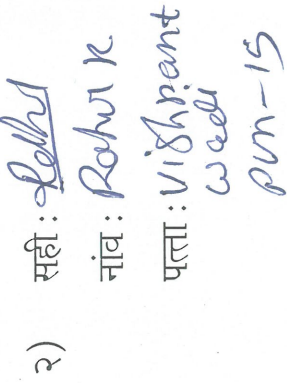 २) सही :
नांव : Rahul K
पत्ता : Vishrant
wadi
pun-15